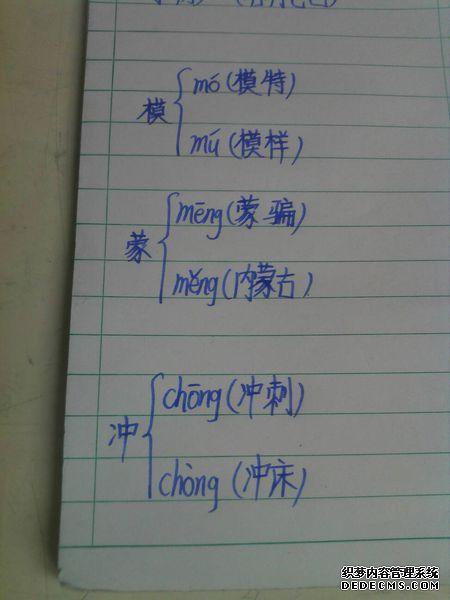 模
mó(模特)
mú(模样)
蒙
mēng(蒙骗)
měng(内蒙古)
冲
chōng(冲刺)
chòng(冲床)
织梦内容管理系统
DEDECMS.COM